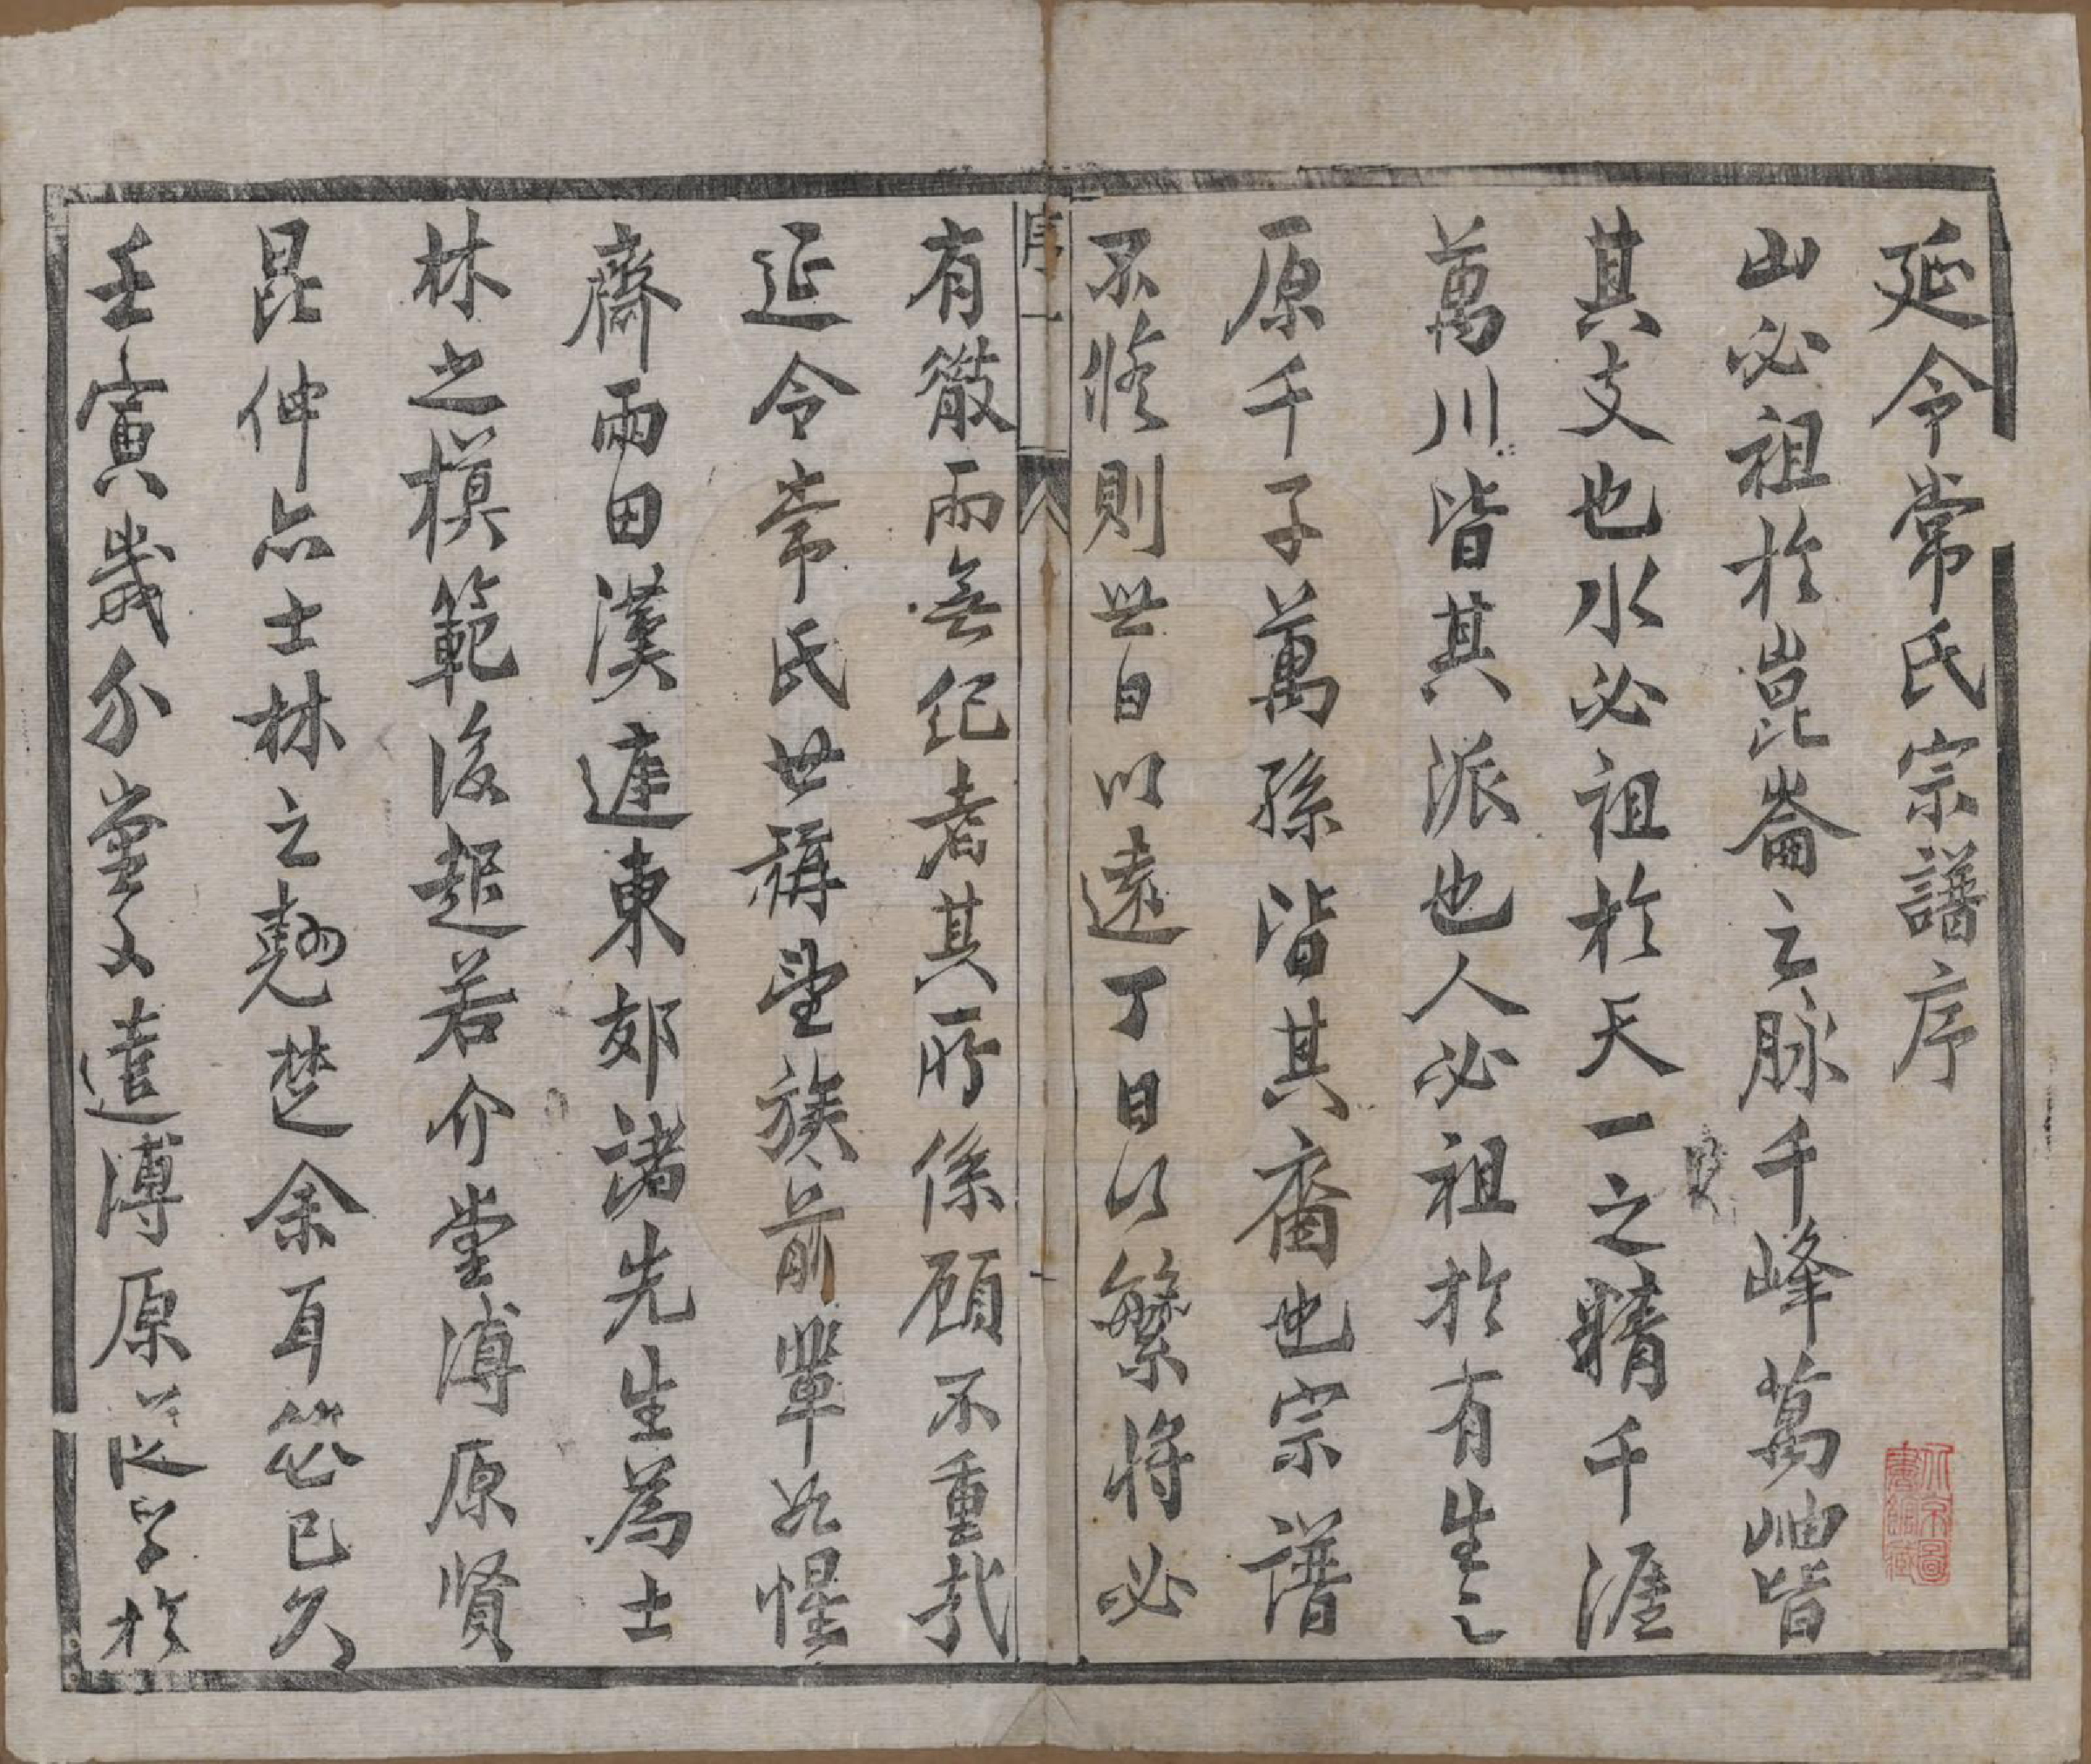 延令常氏宗譜序
山必祖於崑崙之脉千峰萬岫皆
其支也水必祖於天一之精千涯
萬川皆其派也人必祖於有生之
原千子萬孫皆其裔也宗譜
不脩則世日以遠丁日以繁將必
序 一
有散而無紀者其所係顧不重哉
延令常氏世稱望族前輩如惺
齋雨田漢遮東郊諸先生為士
林之模範後起若介堂溥原賢
昆仲亦士林之翹楚余耳薌已久
壬寅歲介堂又遣溥原從學於